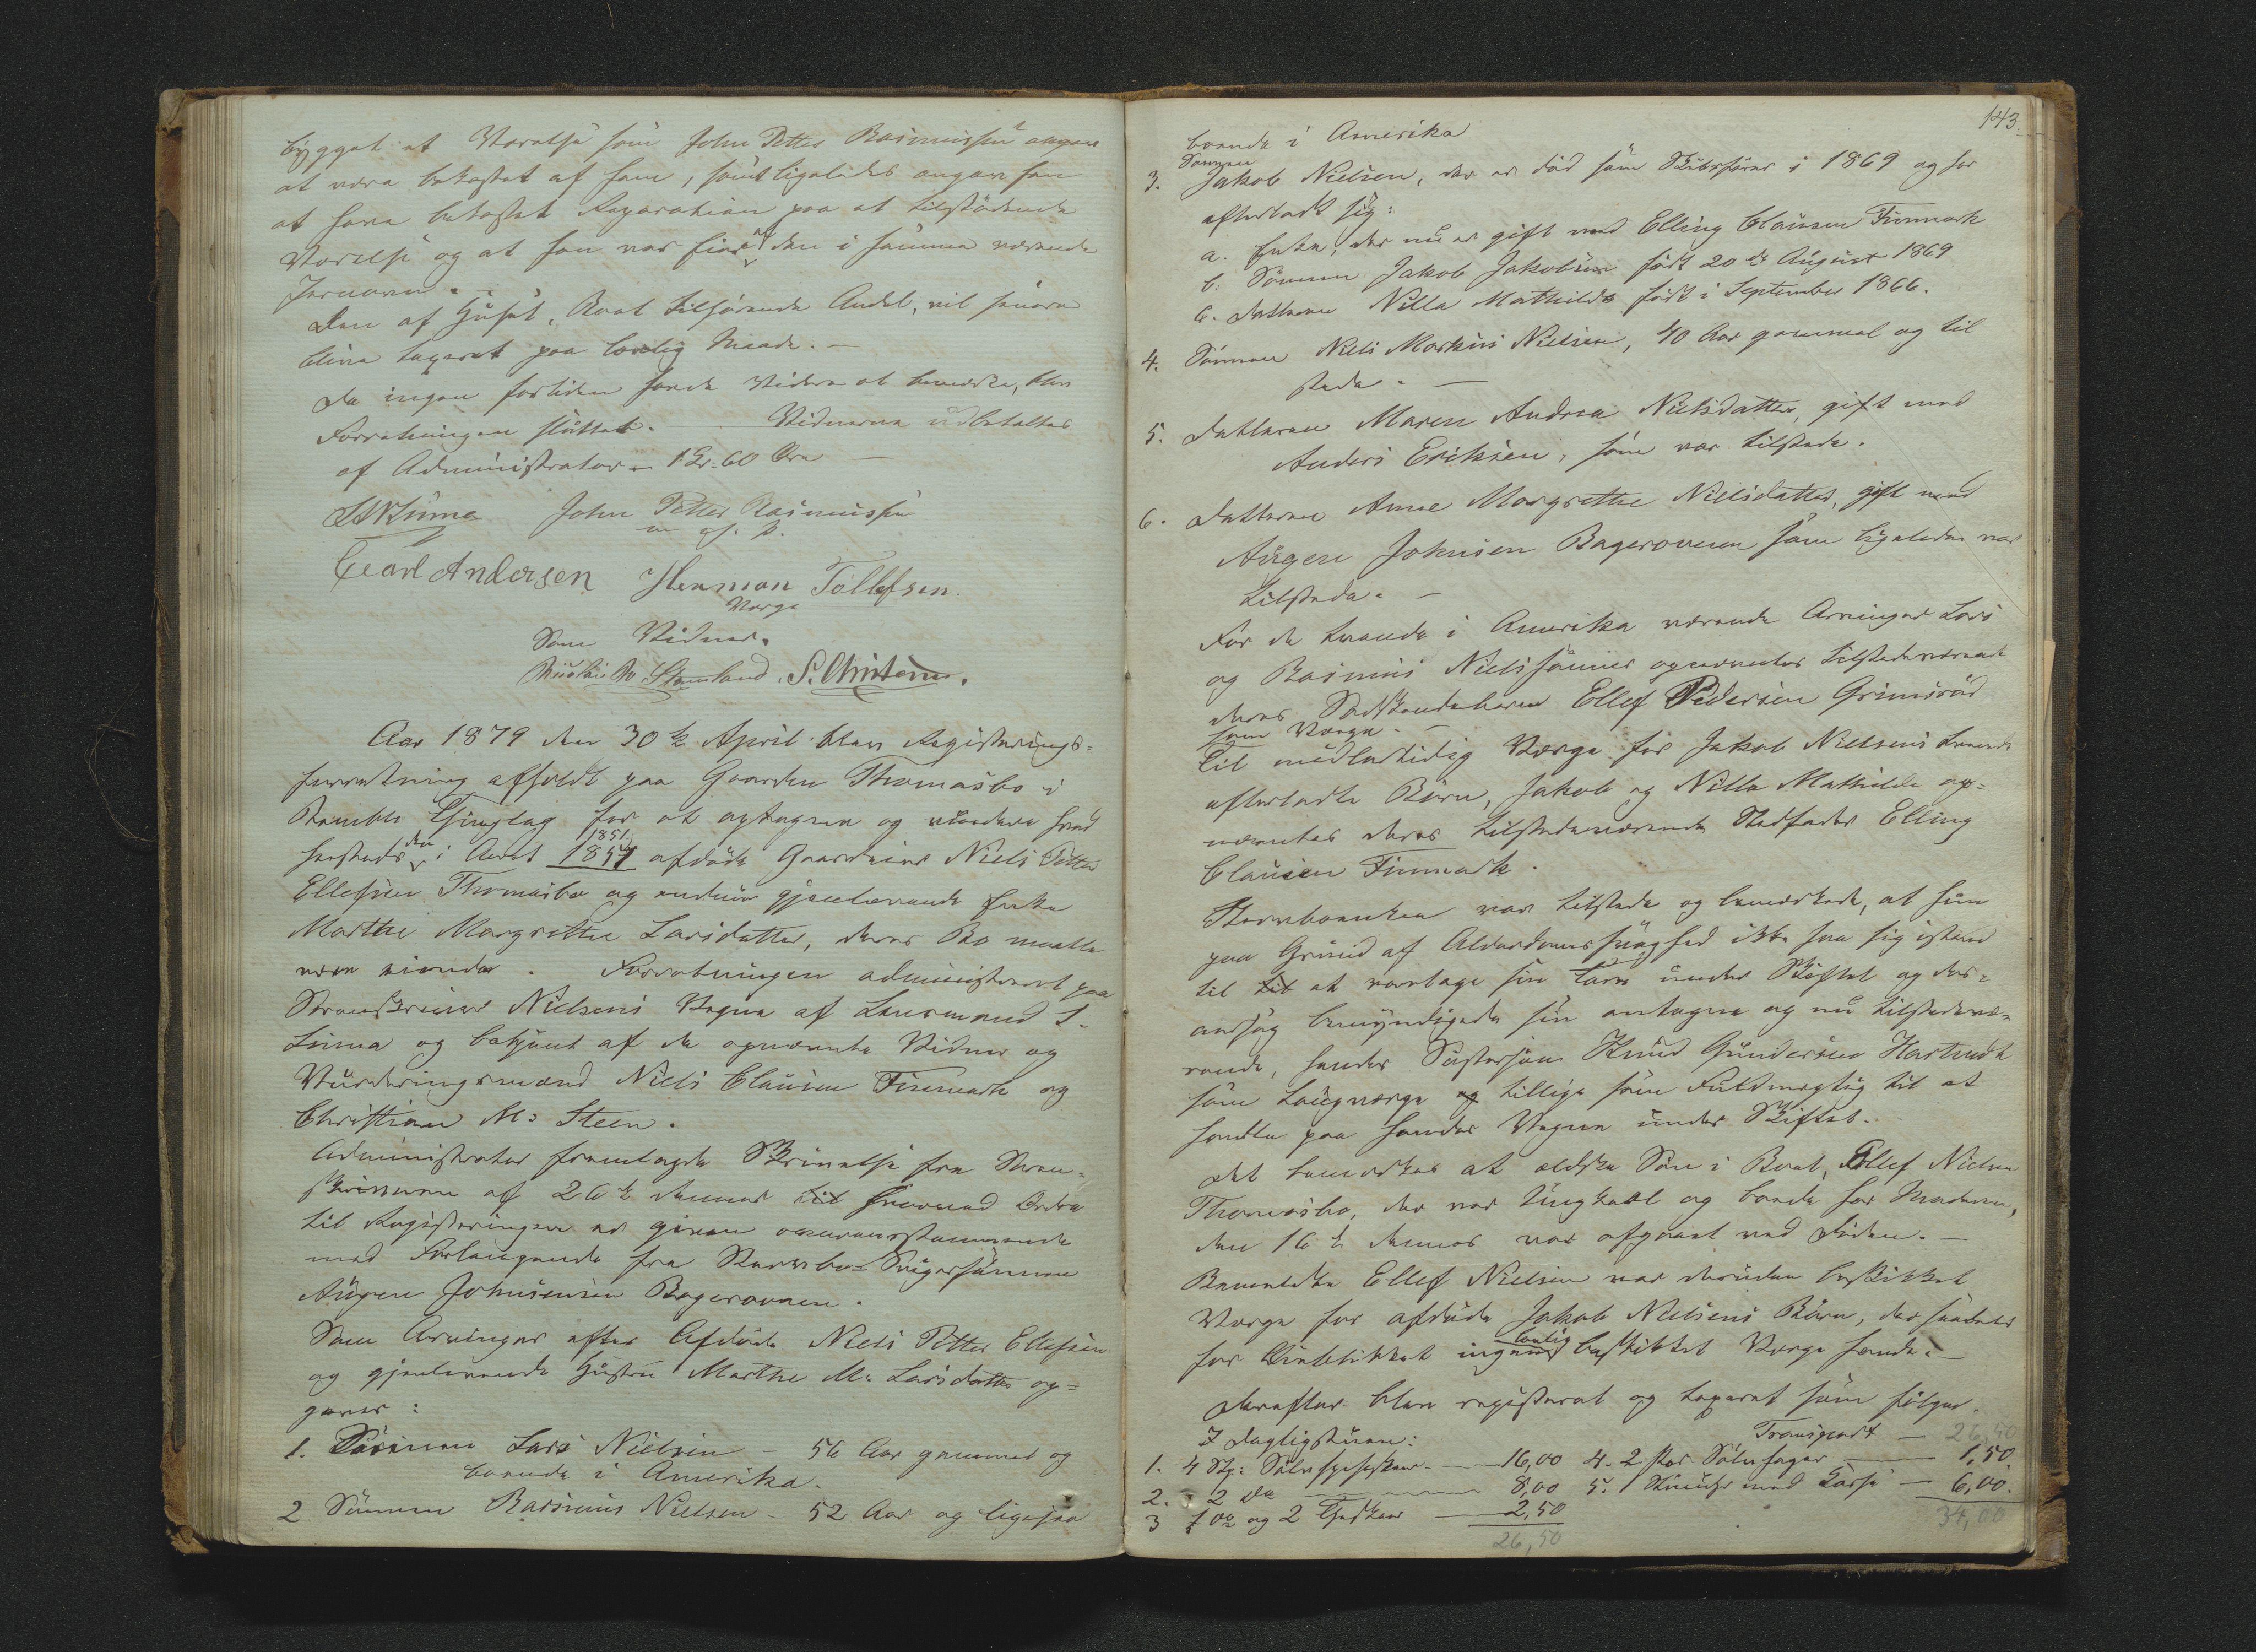 bygget et Værelse som John Petter Rasmussen angav
at være bekostet af ham, samt ligeledes angav han
at have bekostet Reparation paa et tilstødende
Værelse og at han var Eier af den i samme værende
Jernovn.
Den af Huset, Boet tilhørende Andel, vil senere
blive taxeret paa lovlig Maade. —
Da ingen fortiden havde Videre at bemærke, blev
Forretningen sluttet. Vidnerne udbetaltes
af Administrator 1 Kr. 60 Øre —
John Petter Rasmussen
m. p. P.
Carl Andersen Herman Tollefsen.
Værge
Som Vidner.
Stamland. S. Christensen.
Aar 1879 den 30te April blev Registrerings-
forretning afholdt paa Gaarden Thomasbo i
Bamble Thinglag for at optegne og vurdere hvad
hersteds den i Aaret 1851. afdøde Gaardeier Niels Petter
Ellefsen Thomasbo og endnu gjenlevende Enke
Marthe Margrethe Larsdatter, deres Bo maatte
være eiende. Forretningen administreret paa
Sorenskriver Nielsens Vegne af Lensmand L.
Lima og betjent af de opnævnte Vidner og
Vurderingsmænd Niels Clausen Finmark og
Christian M: Steen.
Administrator fremlagde Skrivelse fra Soren-
skriveren af 26de dennes hvorved Ordre
til Registreringen er given overensstemmende
med Forlangende fra Stervbo-Svigersønnen
Aügen Johnsensen Bagerovnen.
Som Arvinger efter Afdøde Niels Petter Ellefsen
og gjenlevende Hustru Marthe M: Larsdatter op-
gaves:
1. Sønnen Lars Nielsen — 56 Aar gammel og
boende i Amerika.
2 Sønnen Rasmus Nielsen — 52 Aar og ligesaa
143.
boende i Amerika
3. Sønnen Jakob Nielsen, der er død som Skibsfører i 1869 og har
efterladt sig:
a. Enke, der nu er gift med Elling Clausen Finmark
b. Sønnen Jakob Jakobsen født 20de August 1869
c. Datteren Nilla Mathilde født i September 1866.
4. Sønnen Niels Markus Nielsen, 40 Aar gammel og til
stede. —
5. Datteren Maren Andrea Nielsdatter, gift med
Anders Eriksen, som var tilstede.
6. Datteren Anne Margrethe Nielsdatter, gift med
Aügen Johnsen Bagerovnen som ligeledes var
tilstede. —
For de tvende i Amerika værende Arvinger Lars
og Rasmus Nielssønner opnævntes tilstedeværende
deres Ellef Pedersen Grimsrød
som Værge. —
Til midlertidig Værge for Jakob Nielsens tvende
efterladte Børn, Jakob og Nilla Mathilde op-
nævntes deres tilstedeværende Stedfader Elling
Clausen Finmark.
Stervboenken var tilstede og bemærkede, at hun
paa Grund af Alderdomssvaghed ikke saa sig istand
til at varetage sin Tarv under Skiftet og der-
andsøg bemyndigede sin antagne og nu tilstedevæ-
rende, hendes Søstersøn Knud Gundersen Hastvedt
som Laugværge og tillige som Fuldmægtig til at
handle paa hendes Vegne under Skiftet.
Det bemærkes at ældste Søn i Boet, Ellef Nielsen
Thomasbo, der var Ungkarl og boede hos Moderen,
den 16de dennes var afgaaet ved Døden. —
Benævnte Ellef Nielsen var desuden beskikket
Værge for afdøde Jakob Nielsens Børn, der saaledes
for Øieblikket ingen lovlig beskikket Værge havde. —
Derefter blev registreret og taxeret som følger.
I Dagligstuen:
1. 4 Stk: Sølvspiseskeer — 16,00
2. 2 Do — 8,00
3 1 Do og 2 Theskeer — 2,50
26,50
Transport — 26,50
4. 2 Par Sølvhager — 1,50.
5. 1 Stueuhr med Kasse — 6,00.
34,00